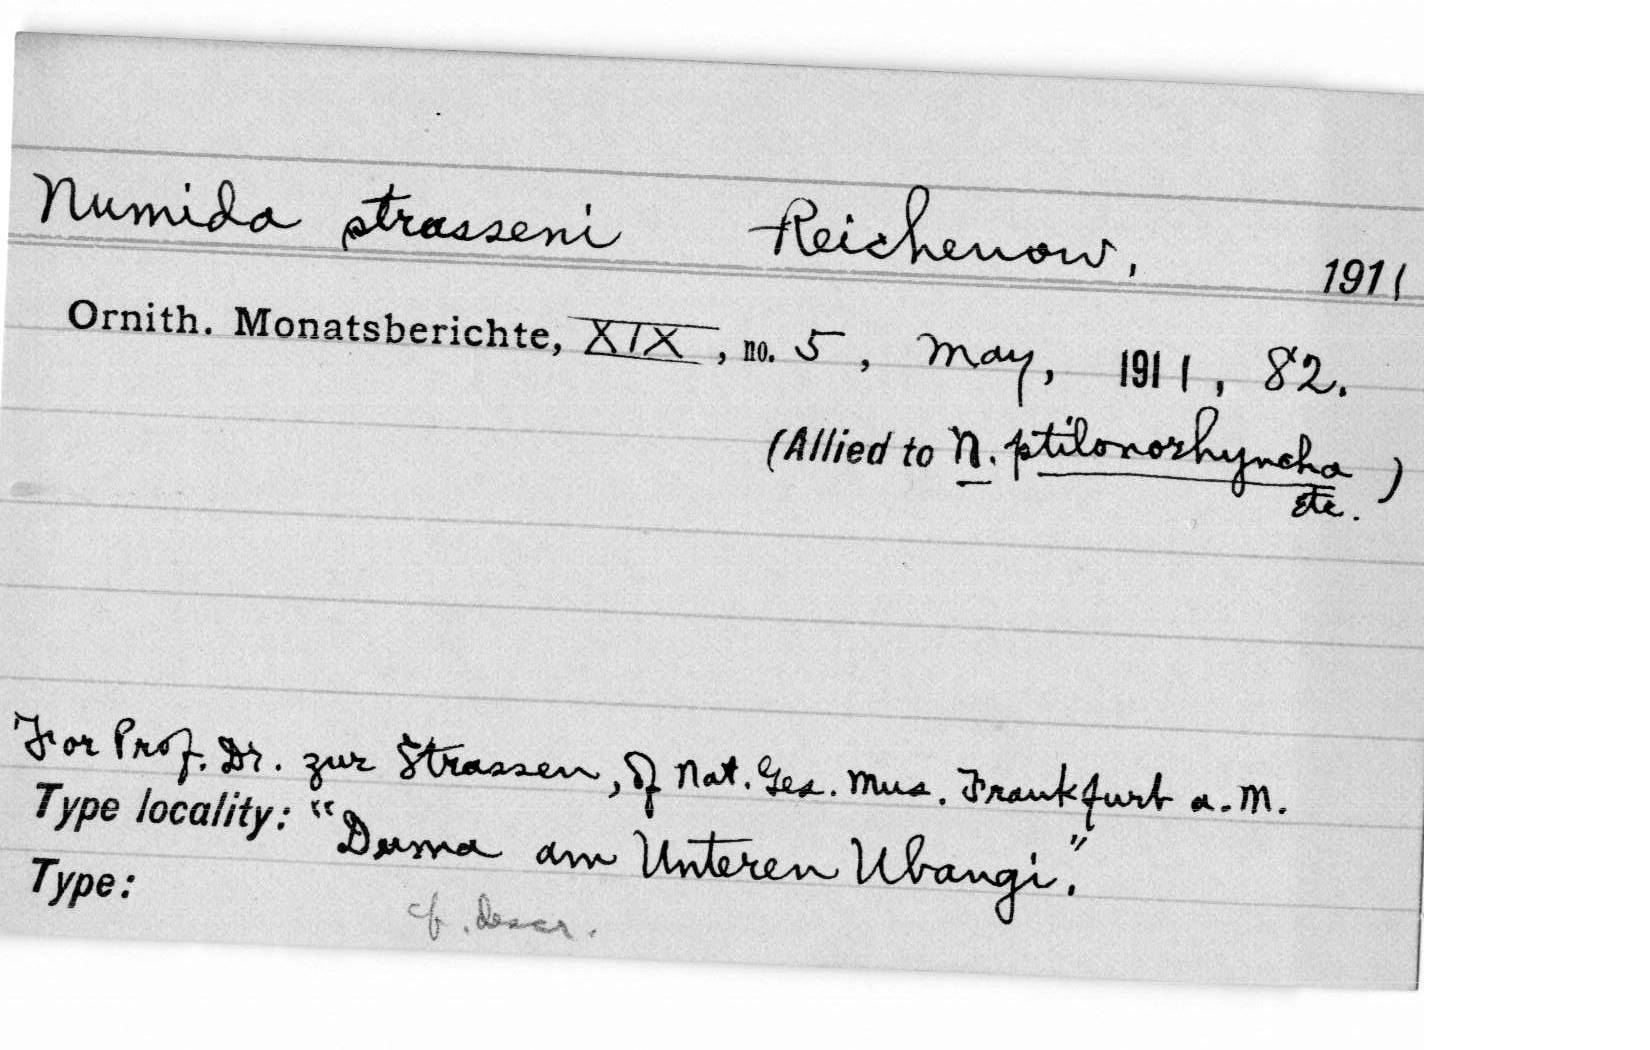 Numida strasseni Reichenow, 1911
Ornith. Monatsberichte, XIX, no. 5, May, 1911, 82.
(Allied to N. ptilonorhyncha )
etc.
For Prof. Dr. zur Strassen, of Nat. Ges. Mus. Frankfurt a. M.
Type locality: "Duma am Unteren Ubangi."
Type:
cf. descr.